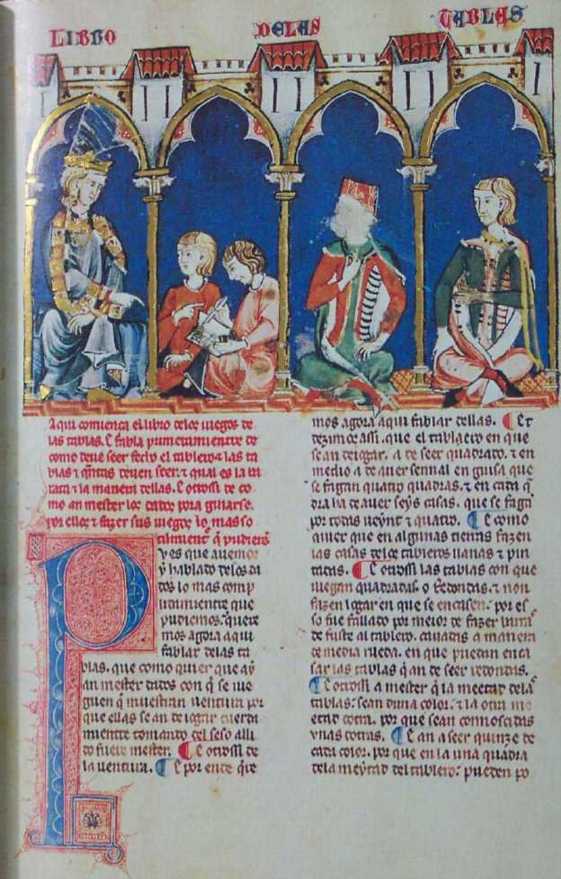 LIBRO DELAS TABLAS
Aqui comiença el libro delos iuegos de
las tablas. E fabla primeramientre de
como deue seer fecho el tablero & las ta
blas & quantas deuen seer & qual es la ba
rata & la manera dellas. E otrossi de co
mo an mester los dados pora guiarse
por ellos & fazer sus iuegos lo mas so
tilmient que pudierẽ
Pves que auemos
ya hablado delos da
dos lo mas comp
lidamientre que
pudiemos. quere
mos agora aqui
fablar delas ta
blas. que como quier que aỹ
an mester dados con que se iue
guen que muestran uentura por
que ellas se an de iogar cuerda
mientre tomando del seso alli
do fuere mester. ¶ E otrossi de
la uentura. ¶ E por ende que
mos agora aqui fablar dellas. ¶ Et
dezimos assi. que el tablero en que
se an de iogar. a de seer quadrado. & en
medio a de auer sennal en guisa que
se fagan quatro quadras. & en cada q̃
dra ha de auer seys casas. que se fagã
por todas ueynt & quatro. ¶ E como
quier que en algunas tierras fazen
las casas delos tableros llanas & pin
tadas. ¶ E otrossi las tablas con que
iuegan quadradas. o redondas. & non
fazen logar en que se encasen. por es
so fue fallado por meior de fazer
de fuste al tablero. cauadas a manera
de media rueda. en que puedan enca
sar las tablas que an de seer redondas.
¶ E otrossi a mester que la meetad delas
tablas. sean duna color. & la otra me
etad dotra. por que sean connosçudas
unas dotras. ¶ E an a seer quinze de
cada color. por que en la una quadra
dela meytad del tablero. pueden po